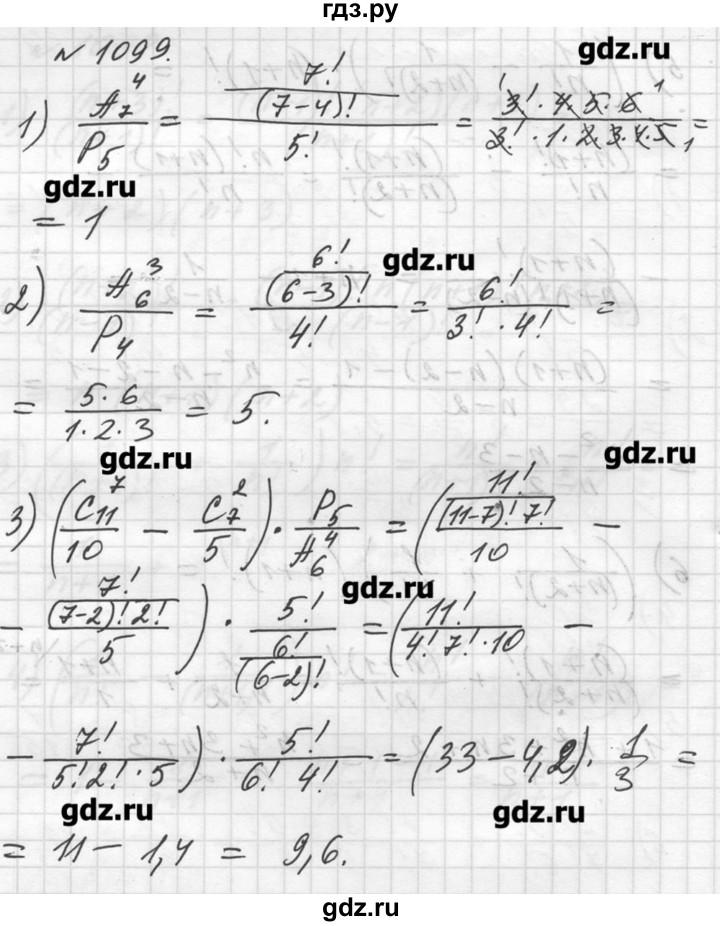 гдз.ру
№ 1099.
gdz.ru
1) A₇⁴ / P₅ = (7! / (7-4)!) / 5! = (3! · 4 · 5 · 6) / (3! · 1 · 2 · 3 · 4 · 5) =
gdz.ru
= 1
2) A₆³ / P₄ = (6! / (6-3)!) / 4! = 6! / (3! · 4!) =
gdz.ru
= (5 · 6) / (1 · 2 · 3) = 5.
gdz.ru
gdz.ru
3) (C₁₁⁷ / 10 - C₇² / 5) · P₅ / A₆⁴ = ((11! / (11-7)! 7!) / 10 -
gdz.ru
- (7! / (7-2)! 2!) / 5) · 5! / (6! / (6-2)!) = (11! / (4! 7! · 10) -
- 7! / (5! 2! · 5)) · 5! / (6! 4!) = (33 - 4,2) · 1/3 =
gdz.ru
gdz.ru
= 11 - 1,4 = 9,6.
gdz.ru